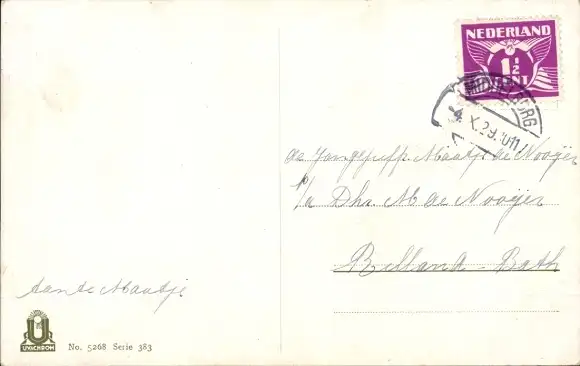 NEDERLAND
1½
CENT
MIDDELBURG
X.29.1011
de Jongejuffr. Maatje de Nooijer
p/a Dhr. M de Nooijer
Rilland-Bath
tante Maatje
UVACHROM
No. 5268 Serie 383